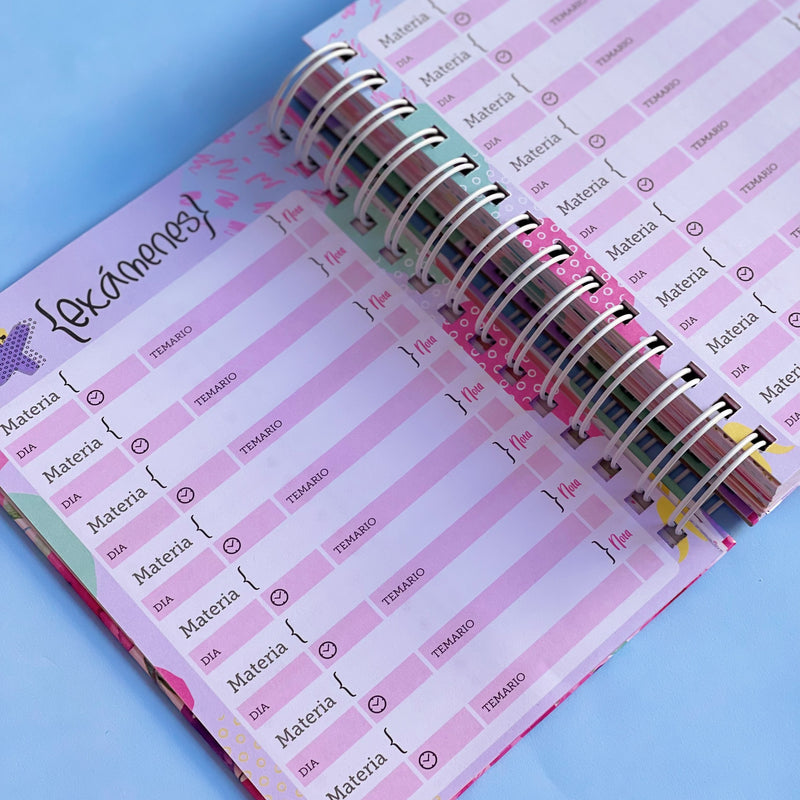 {exámenes}
Materia { } Nota
DIA TEMARIO
Materia { } Nota
DIA TEMARIO
Materia { } Nota
DIA TEMARIO
Materia { } Nota
DIA TEMARIO
Materia { } Nota
DIA TEMARIO
Materia { } Nota
DIA TEMARIO
Materia { } Nota
DIA TEMARIO
Materia { } Nota
TEMARIO
Materia {
DIA
Materia {
DIA TEMARIO
Materia {
DIA TEMARIO
Materia {
DIA TEMARIO
Materia {
DIA TEMARIO
Materia {
DIA TEMARIO
Materia {
DIA
Materia {
DIA
Materia
DIA